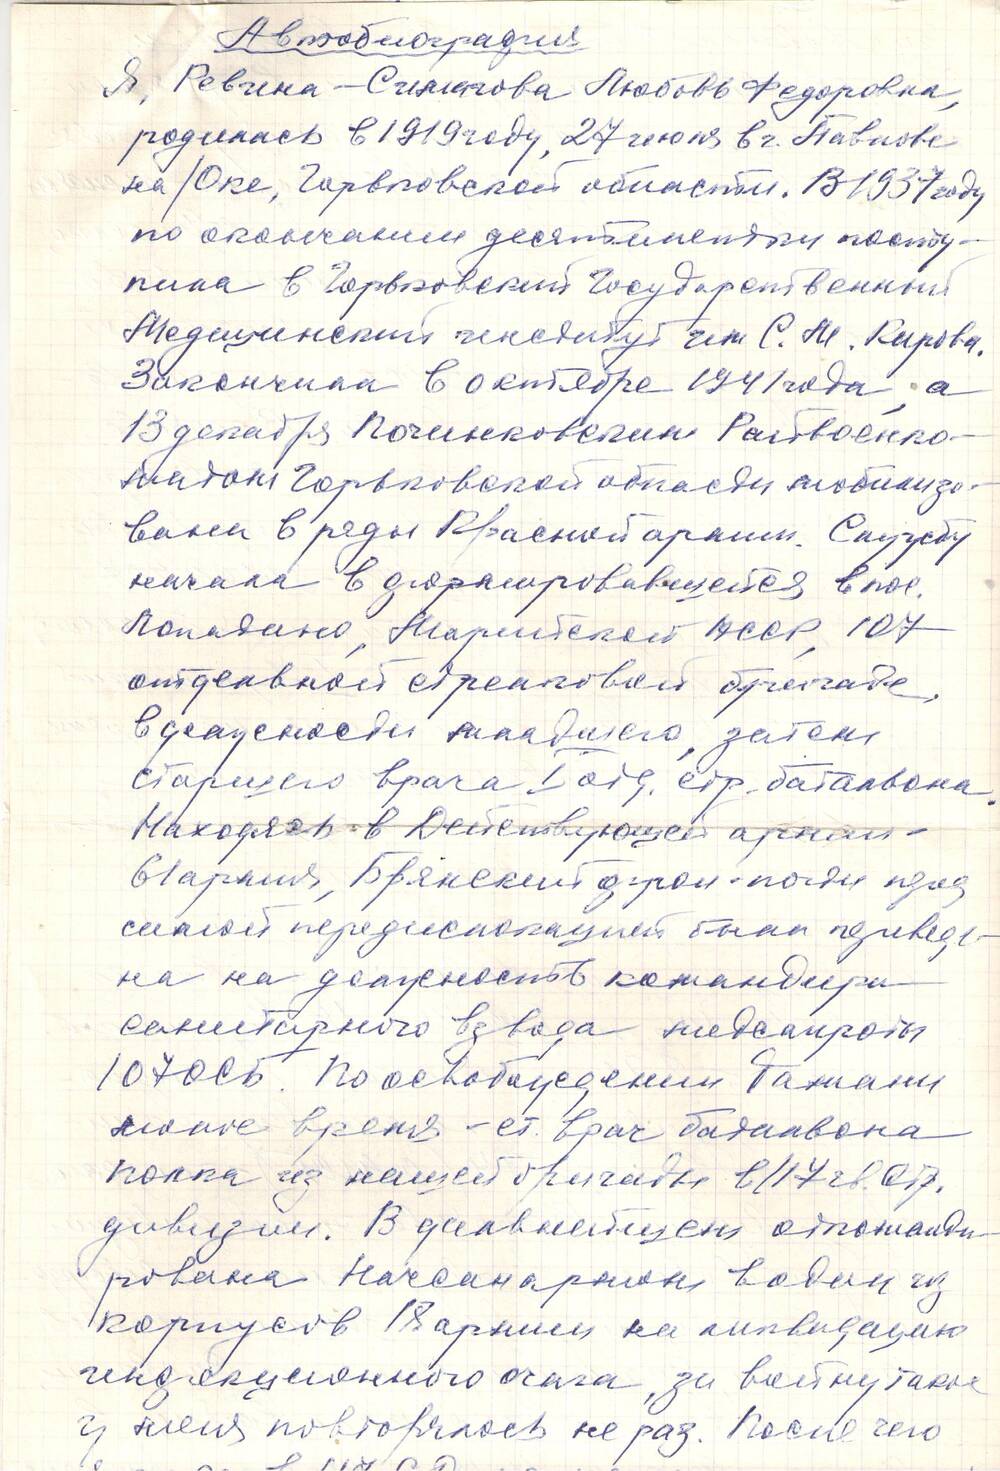 Автобиография
Я, Ревина – Симагова Любовь Федоровна,
родилась в 1919 году, 27 июня в г. Павлове
на/Оке, Горьковской области. В 1937 году
по окончании десятилетки посту-
пила в Горьковский Государственный
Медицинский институт им С. М. Кирова.
Закончила в октябре 1941 года, а
13 декабря Починковским Райвоенко-
матом Горьковской области мобилизо-
вана в ряды Красной армии. Службу
начала в формировавшейся в пос.
Марийской АССР, 107
отдельной стрелковой бригаде,
в должности младшего, затем
старшего врача I отд. стр. батальона.
Находясь в Действующей армии –
61 армия, Брянский фрон - почти пред
самой передислокацией был переведе-
на на должность командира
санитарного взвода медсанроты
107 ОСБ. По освобождении Тамани
малое время – ст. врач батальона
полка из нашей бригады в 117 гв. стр.
дивизии. В дальнейшем откоманди-
рована Начсанармом в один из
корпусов 18 армии на ликвидацию
инфекционного очага, за войну такое
у меня повторялось не раз. После чего